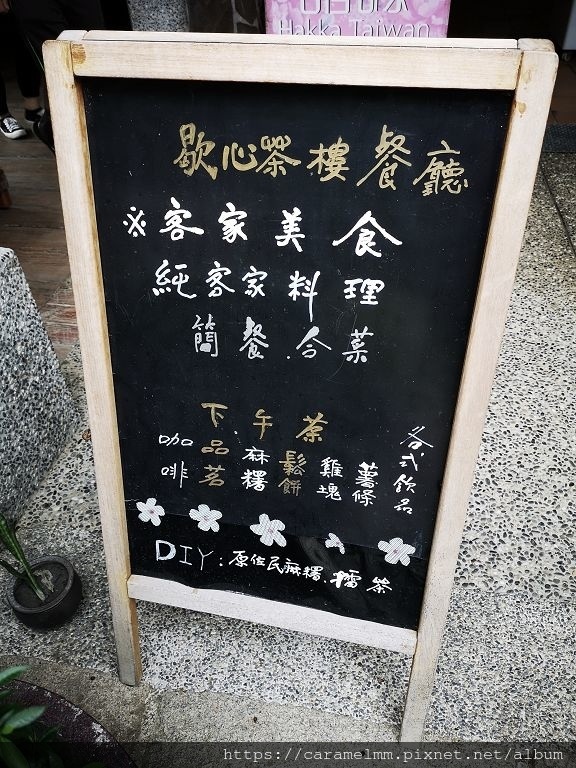 Hakka Taiwan
歇心茶樓餐廳
※客家美食
純客家料理
簡餐.合菜
下.午茶
咖啡 品茗 麻糬 鬆餅 雞塊 薯條 各式飲品
DIY:原住民麻糬.擂茶
https://caramelmm.pixnet.net/album